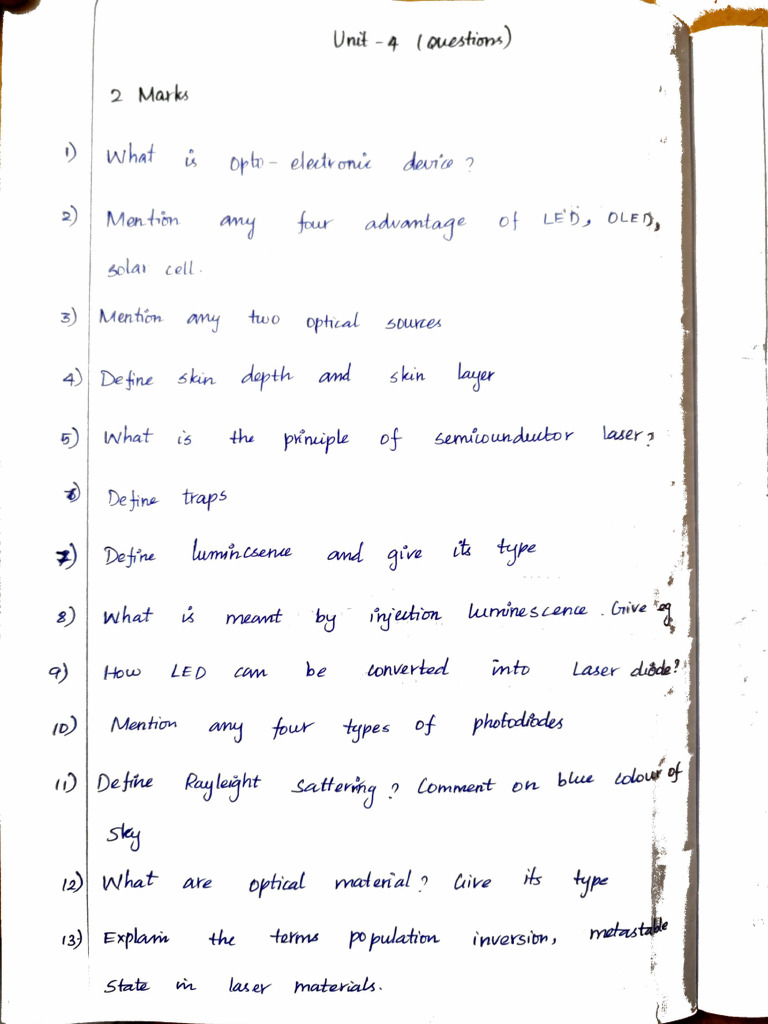 Unit - 4 (Questions)
2 Marks
1) What is opto - electronic device?
2) Mention any four advantage of LED, OLED,
solar cell.
3) Mention any two optical sources
4) Define skin depth and skin layer
5) What is the principle of semicounductor laser?
6) Define traps
7) Define lumincsence and give its type
8) What is meant by injection luminescence. Give eg
9) How LED can be converted into Laser diode?
10) Mention any four types of photodiodes
11) Define Rayleight sattering? Comment on blue colour of
sky
12) What are optical material? Give its type
13) Explain the terms population inversion, metastable
state in laser materials.